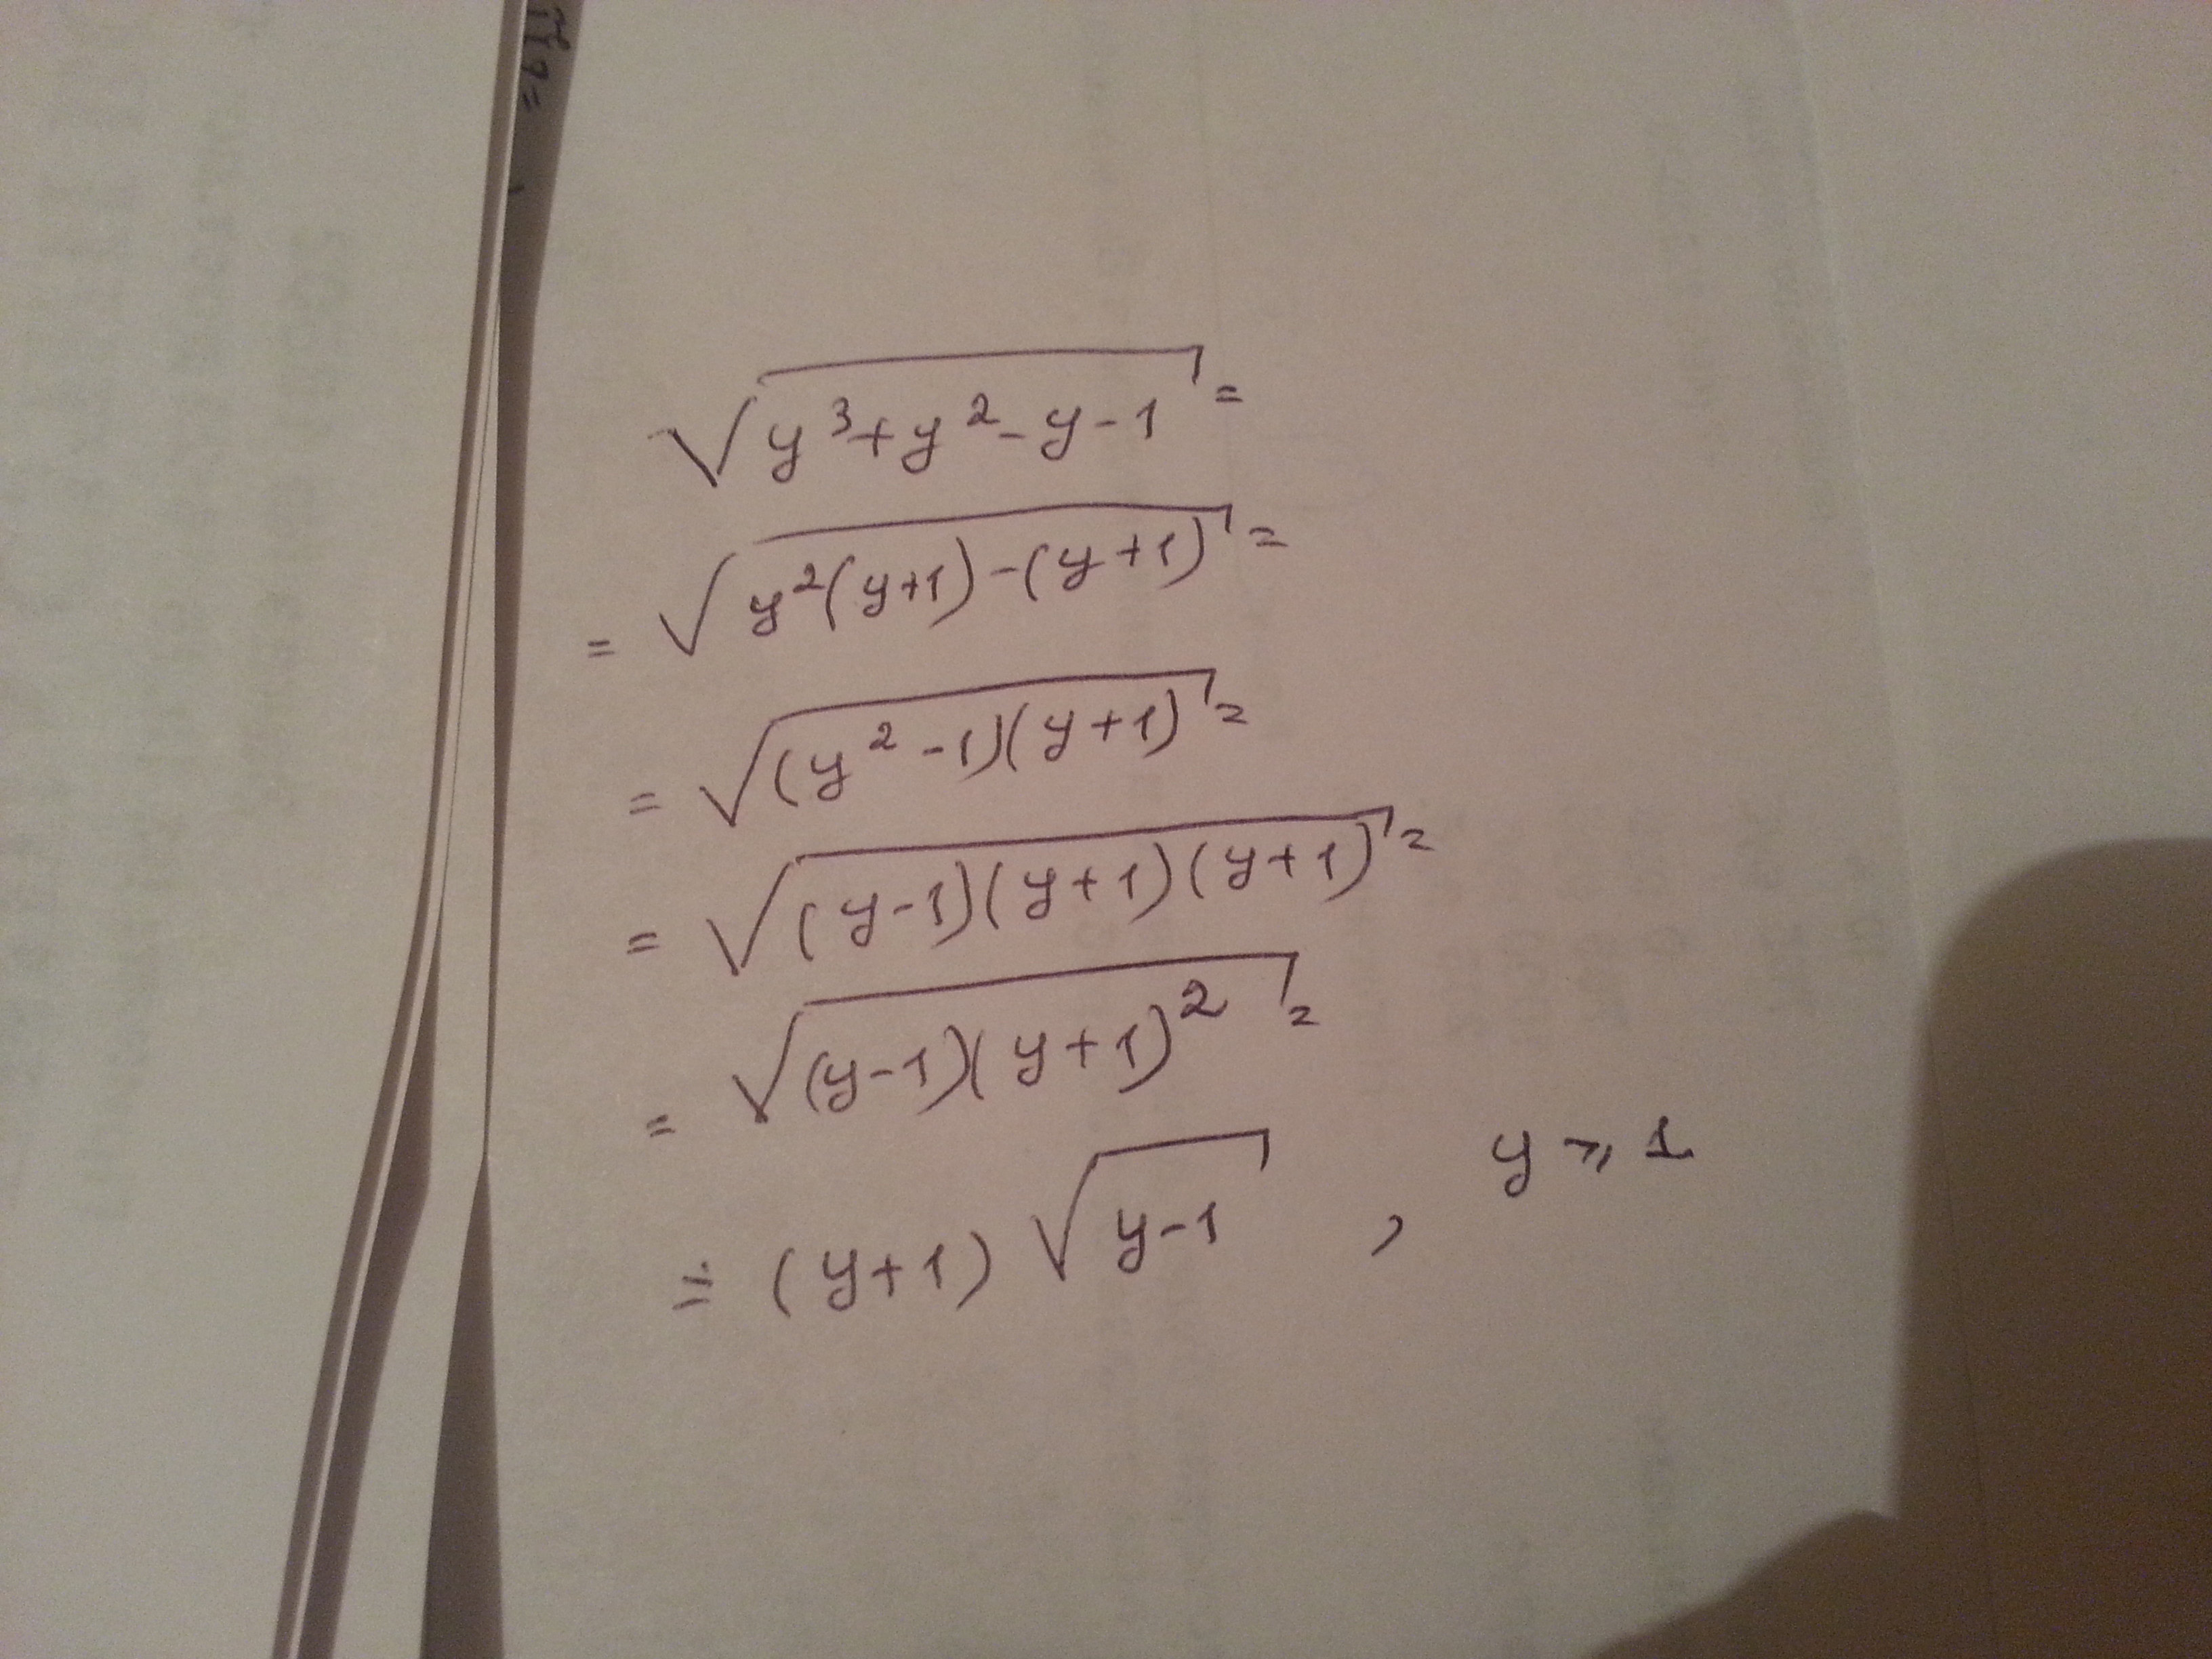 √(y³+y²-y-1) =
= √(y²(y+1)-(y+1)) =
= √((y²-1)(y+1)) =
= √((y-1)(y+1)(y+1)) =
= √((y-1)(y+1)²) =
= (y+1) √(y-1) , y ⩾ 1